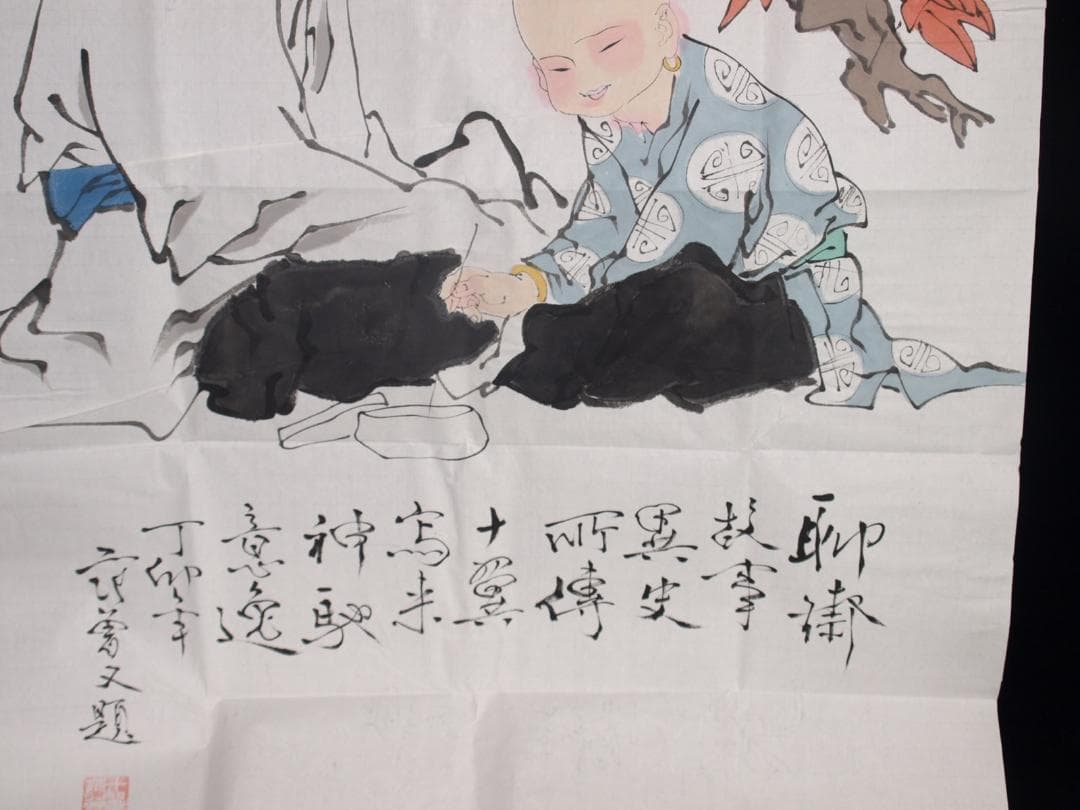 聊
故事
異史
所傳
十翼
寫来
神馳
意逸
丁卯年
范曾又題